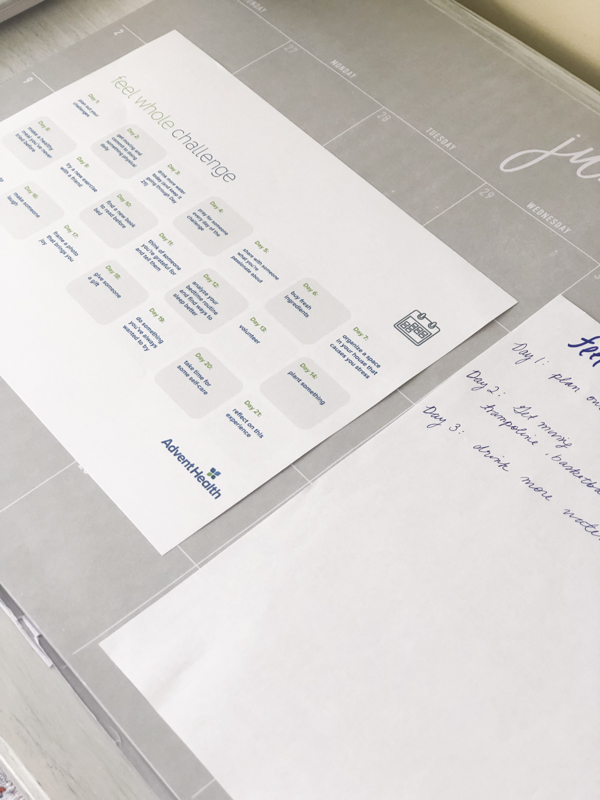 2
9
27
MONDAY
28
TUESDAY
29
WEDNESDAY
feel whole challenge
Day 1:
plan out your
challenges
Day 2:
get moving and
commit to doing
something physical
Day 3:
drink more water
Day 4:
pray for someone
every day of the
challenge
Day 5:
share with someone
what you're
passionate about
Day 6:
buy fresh
ingredients
Day 7:
organize a space
in your house that
causes you stress
Day 8:
make a healthy
meal you've never
tried before
Day 9:
try a new exercise
with a friend
Day 10:
find a new book
to read before
bed
Day 11:
think of someone
you're grateful for
and tell them
Day 12:
analyze your
bedtime routine
and find ways to
sleep better
Day 13:
volunteer
Day 14:
plant something
Day 16:
make someone
laugh
Day 17:
frame a photo
that brings you
joy
Day 18:
give someone
a gift
Day 19:
do something
you've always
wanted to try
Day 20:
take time for
some self-care
Day 21:
reflect on this
experience
AdventHealth
Day 1: plan
Day 2: Get moving
trampoline, basketba
Day 3: drink more water